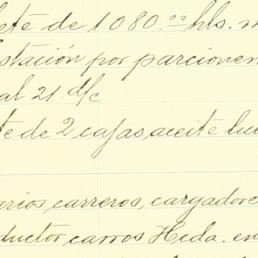 lete de 1080.00 hls. m
stación por parcionen
al 21 d/c
te de 2 cajas aceite lu
arios, carreros, cargadore
ductor carros Hcda. en